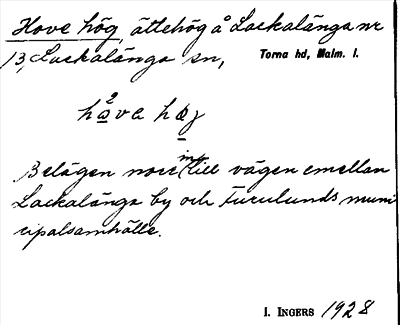 Hove hög, ättehög å Lackalänga nr
13, Lackalänga sn, Torna hd, Malm. l.
hå²va høj
Belägen norr intill vägen emellan
Lackalänga by och Furulunds muni
cipalsamhälle.
I. INGERS 1928